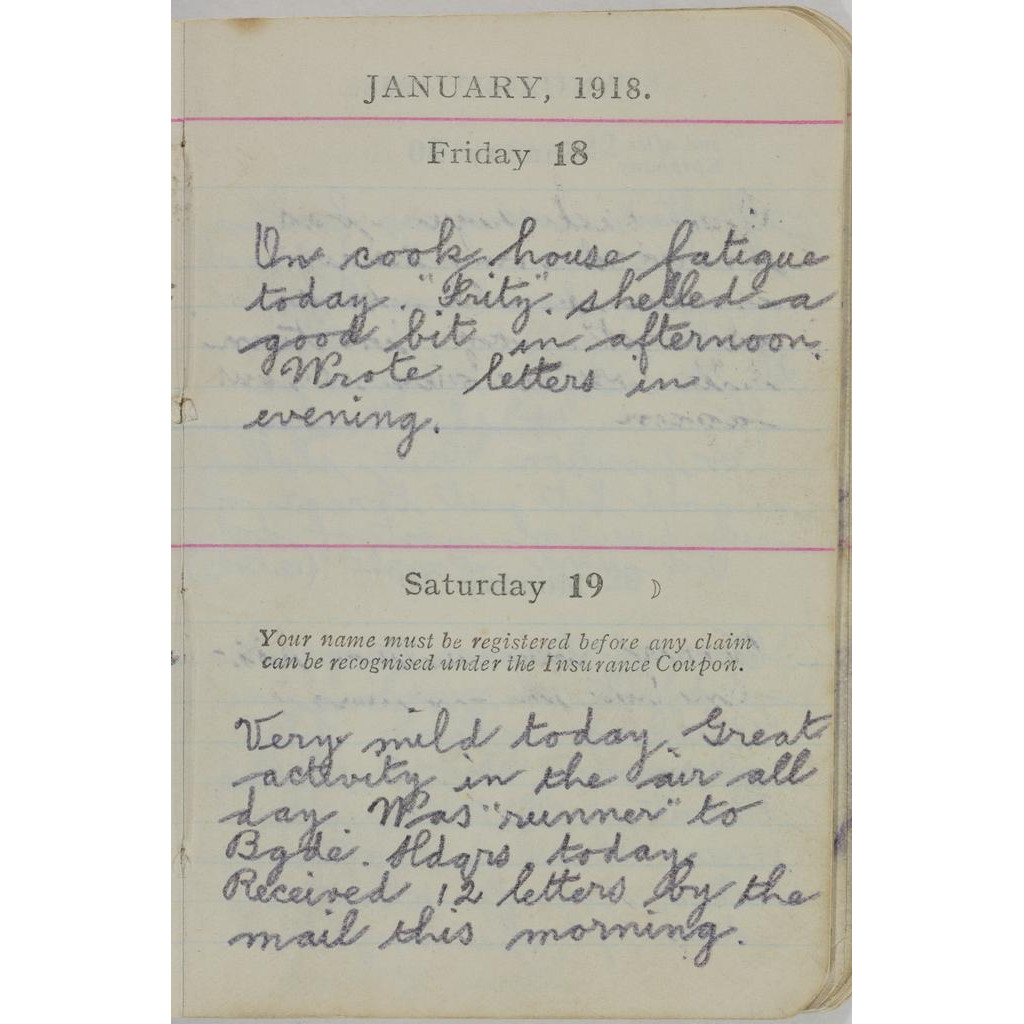 JANUARY, 1918.
Friday 18
On cook house fatigue
today. "Fritz". shelled a
good bit in afternoon.
Wrote letters in
evening.
Saturday 19
Your name must be registered before any claim
can be recognised under the Insurance Coupon.
Very mild today. Great
activity in the air all
day. Was "runner" to
Bgde. Hdqrs. today.
Received 12 letters by the
mail this morning.